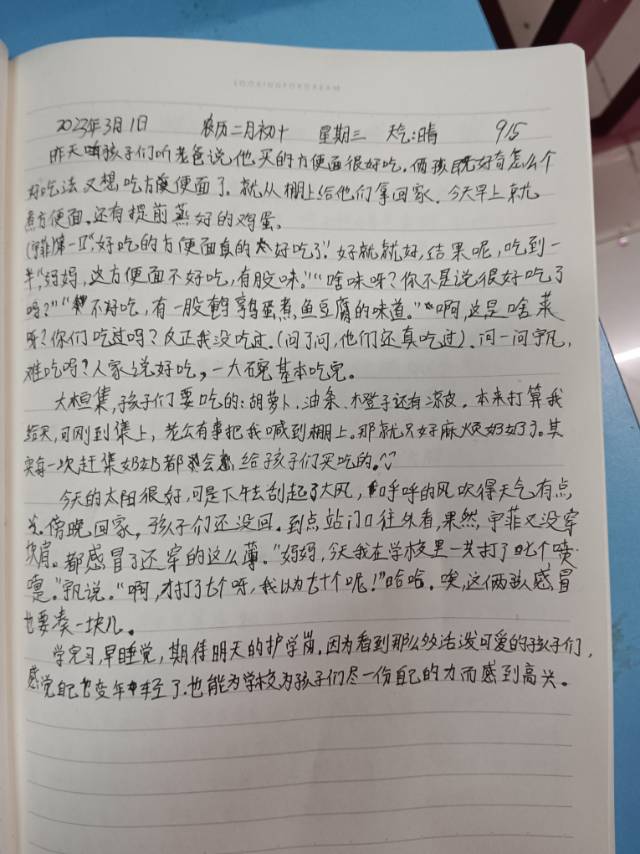 2023年3月1日 农历二月初十 星期三 天气:晴 915
昨天 孩子们听老爸说他买的方便面很好吃。俩孩 好奇怎么个
好吃法又想吃方便面了。就从棚上给他们拿回家。今天早上就
煮方便面。还有提前蒸好的鸡蛋。
"好吃的方便面真的太好吃了。"好就就好,结果呢,吃到一
半,"妈妈,这方便面不好吃,有股味。""啥味呀?你不是说很好吃了
吗?""不好吃,有一股鹌鹑蛋煮鱼豆腐的味道。""啊,这是啥菜
呀?你们吃过吗?反正我没吃过。(问了问,他们还真吃过)。问一问宇凡,
难吃吗?人家说好吃,一大碗基本吃完。
大桓集,孩子们要吃的:胡萝卜、油条、木登子还有凉皮。本来打算我
给买,可刚到集上,老公有事把我喊到棚上。那就只好麻烦奶奶了。其
实每一次赶集奶奶都会 给孩子们买吃的。
今天的太阳很好,可是下午去刮起了大风,呼呼的风吹得天气有点
冷。傍晚回家,孩子们还没回。到点站门口往外看,果然,宇菲又没穿
棉肩。都感冒了还穿的这么薄。"妈妈,今天我在学校里一共打了 七个喷
嚏。"凡说。"啊,才打了七个呀,我以为七十个呢!"哈哈。唉,这俩孩感冒
也要凑一块儿。
学完习,早睡觉,期待明天的护学岗。因为看到那么多活泼可爱的孩子们,
感觉自己也变年轻了。也能为学校为孩子们尽一份自己的力而感到高兴。